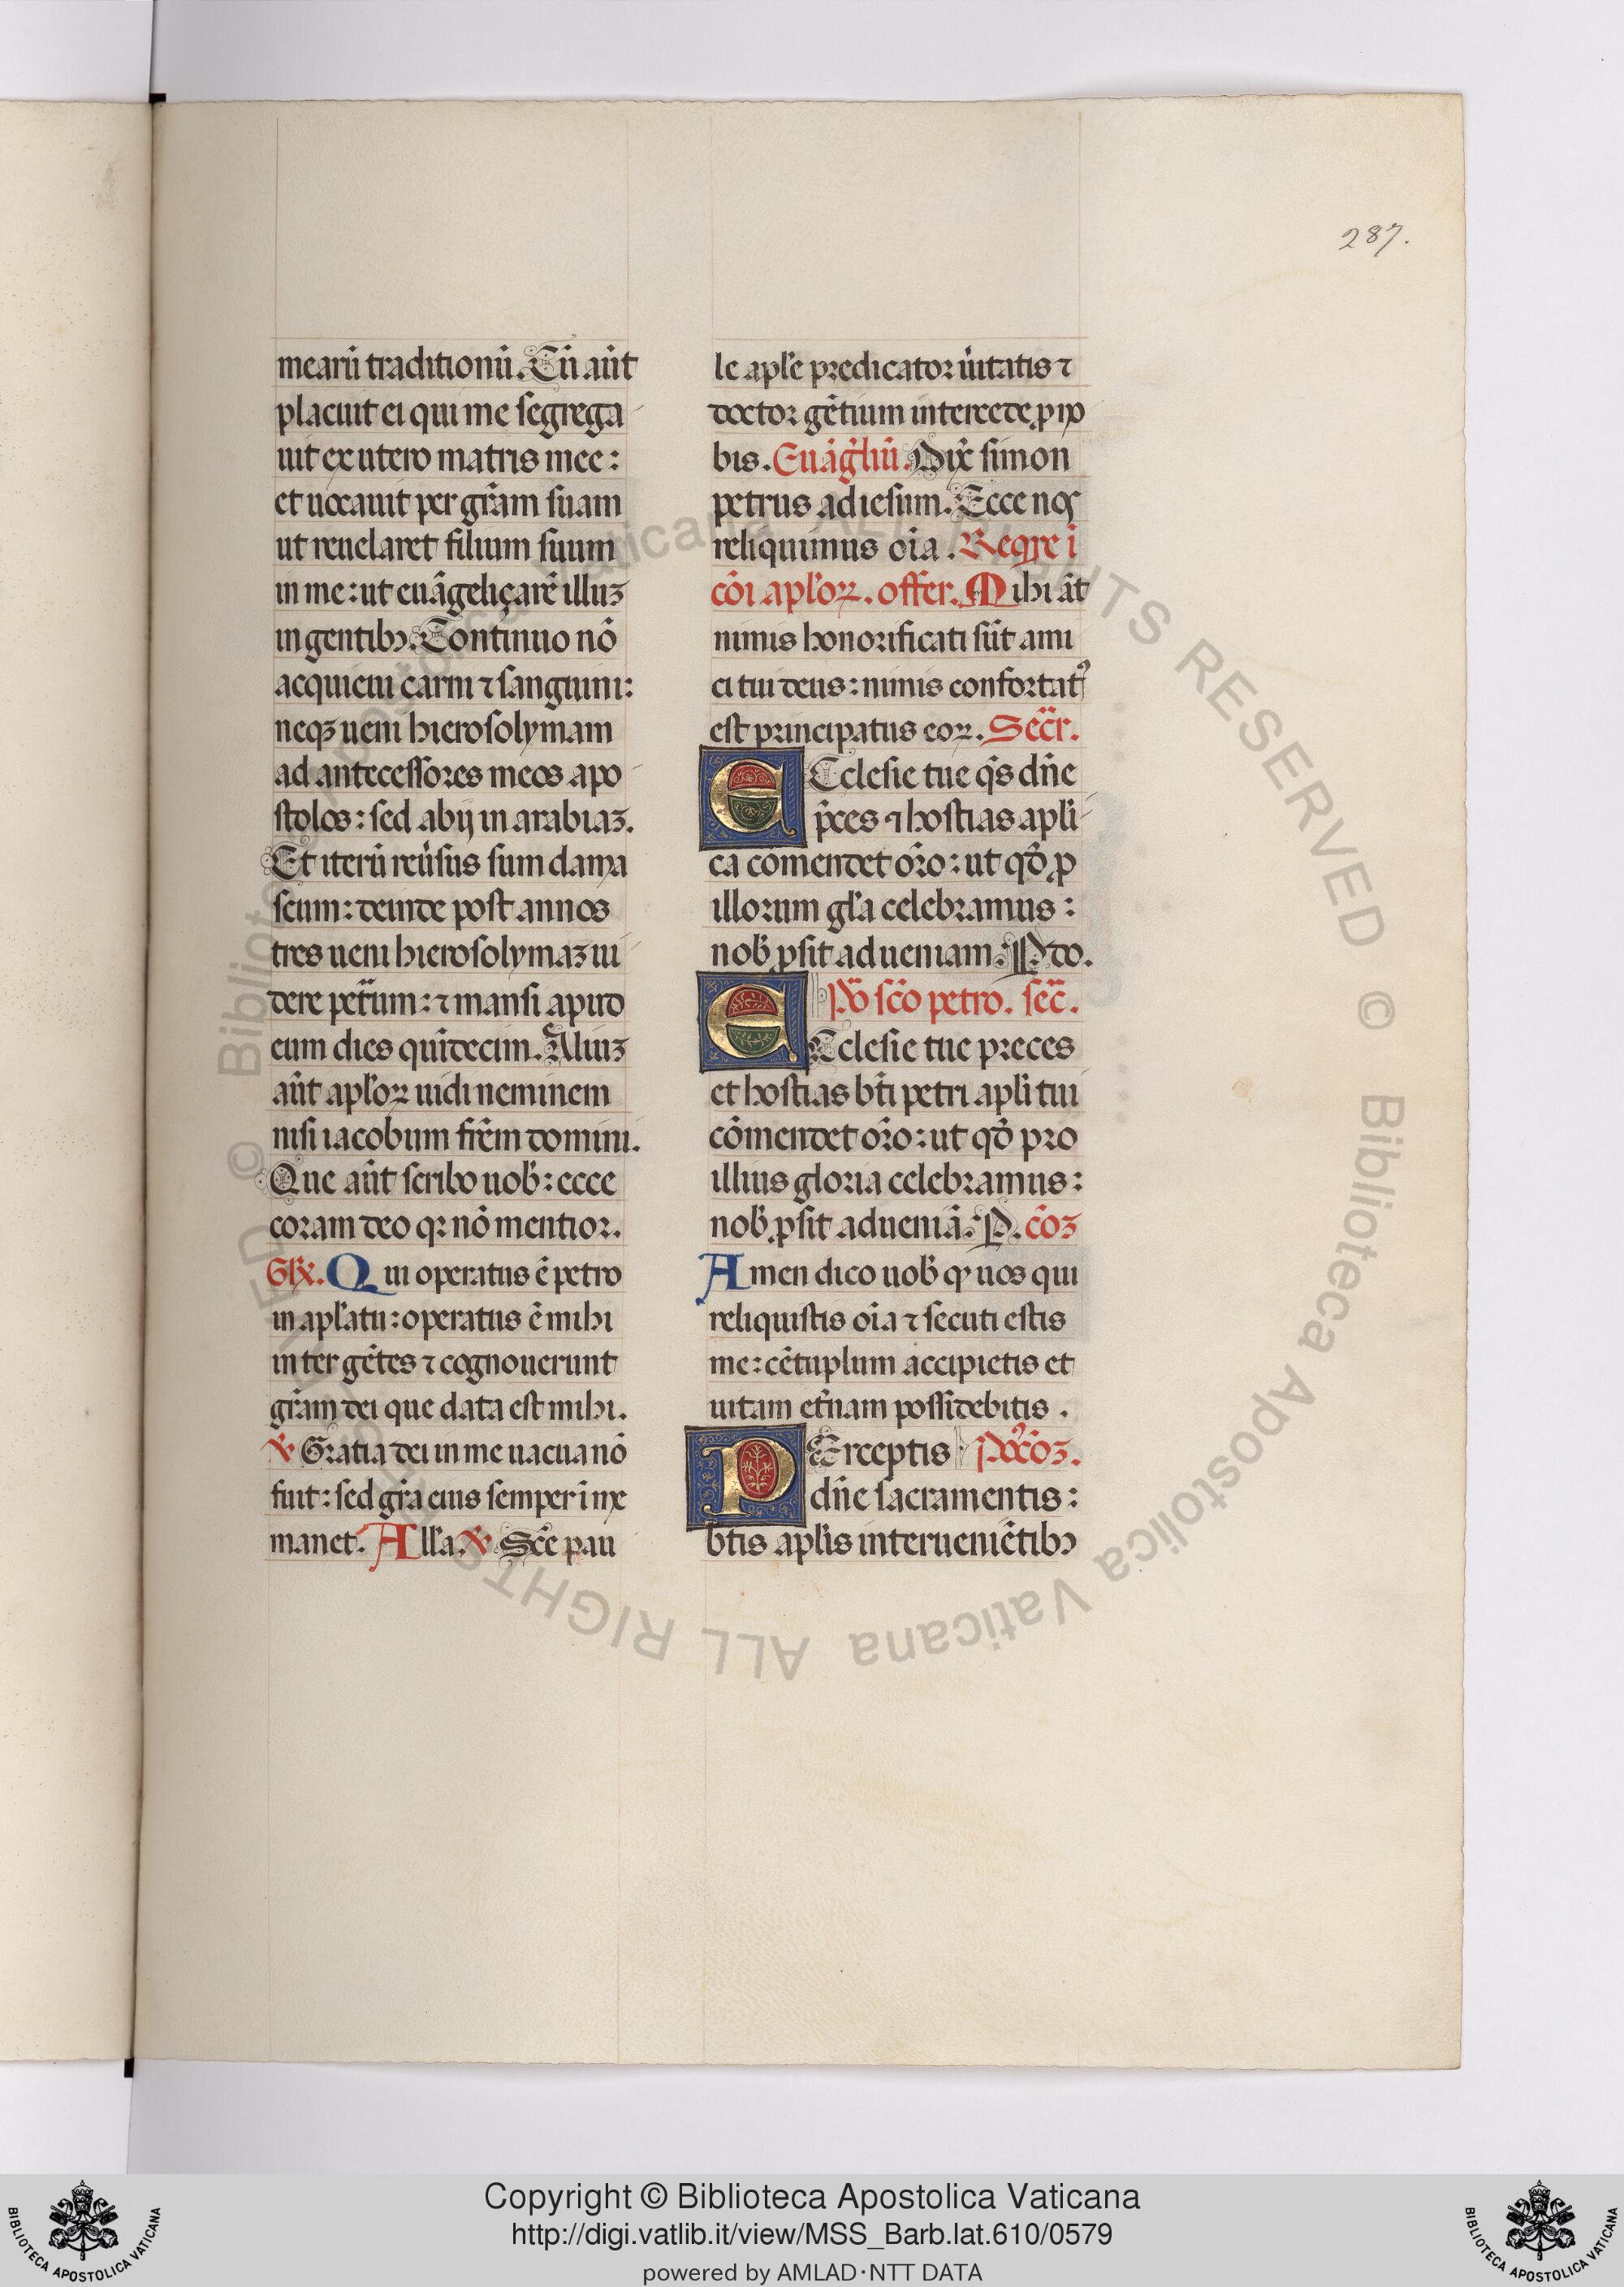 287.
mearū traditionū. Cū aūt
placuit ei qui me segrega
uit ex utero matris mee:
et uocauit per grām suam
ut reuelaret filium suum
in me: ut euāgeliçarē illuꝫ
in gentibꝫ. Continuo nō
acquieui carni ⁊ sanguini:
neqꝫ ueni hierosolymam
ad antecessores meos apo
stolos: sed abij in arabiaꝫ.
Et iterū reūsus sum dama
scum: deinde post annos
tres ueni hierosolymaꝫ ui
dere petrum: ⁊ mansi apud
eum dies quīdecim. Aliuꝫ
aūt aplōꝝ uidi neminem
nisi iacobum frēm domini.
Que aūt scribo uob̄: ecce
coram deo qꝛ nō mentior.
Gr̄. Qui operatus ē petro
in apl̄atu: operatus ē mihi
inter gētes ⁊ cognouerunt
grām dei que data est mihi.
℣ Gratia dei in me uacua nō
fuit: sed gr̄a eius semper ī me
manet. All̄a. ℣. Scē pau
le apl̄e predicator ūitatis ⁊
doctor gētium intercede ꝓ no
bis. Euāgl̄iū. Dix̄ simon
petrus ad iesum. Ecce nos
reliquimus oīa. Reqͥre ī
cōi aplōꝝ. offer. Mihi āt
nimis honorificati sūt ami
ci tui deus: nimis confortatꝰ
est principatus eoꝝ. Secr̄.
ECclesie tue qs̄ dn̄e
p̄ces ⁊ hostias apl̄i
ca cōmendet orō: ut qd̄ ꝓ
illorum gl̄a celebramus:
nob̄ ꝓsit ad ueniam. P do.
Pō scō petro. sec̄.
ECclesie tue preces
et hostias bt̄i petri apl̄i tui
cōmendet orō: ut qd̄ pro
illius gloria celebramus:
nob̄ ꝓsit ad ueniā. P. cōꝫ
Amen dico uob̄ ꝙ uos qui
reliquistis oīa ⁊ secuti estis
me: cētuplum accipietis et
uitam et̄nam possidebitis.
PErceptis Pꝰcōꝫ.
dn̄e sacramentis:
bt̄is apl̄is interueniētibꝫ
© Biblioteca Apostolica Vaticana ALL RIGHTS RESERVED © Biblioteca Apostolica Vaticana ALL RIGHTS RESERVED
BIBLIOTECA APOSTOLICA VATICANA
Copyright © Biblioteca Apostolica Vaticana
http://digi.vatlib.it/view/MSS_Barb.lat.610/0579
powered by AMLAD·NTT DATA
BIBLIOTECA APOSTOLICA VATICANA